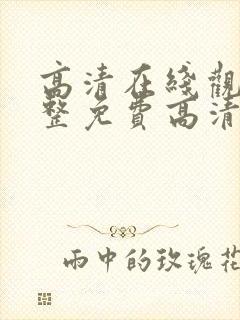 高清在线觀
整免费高清
雨中的玫瑰花